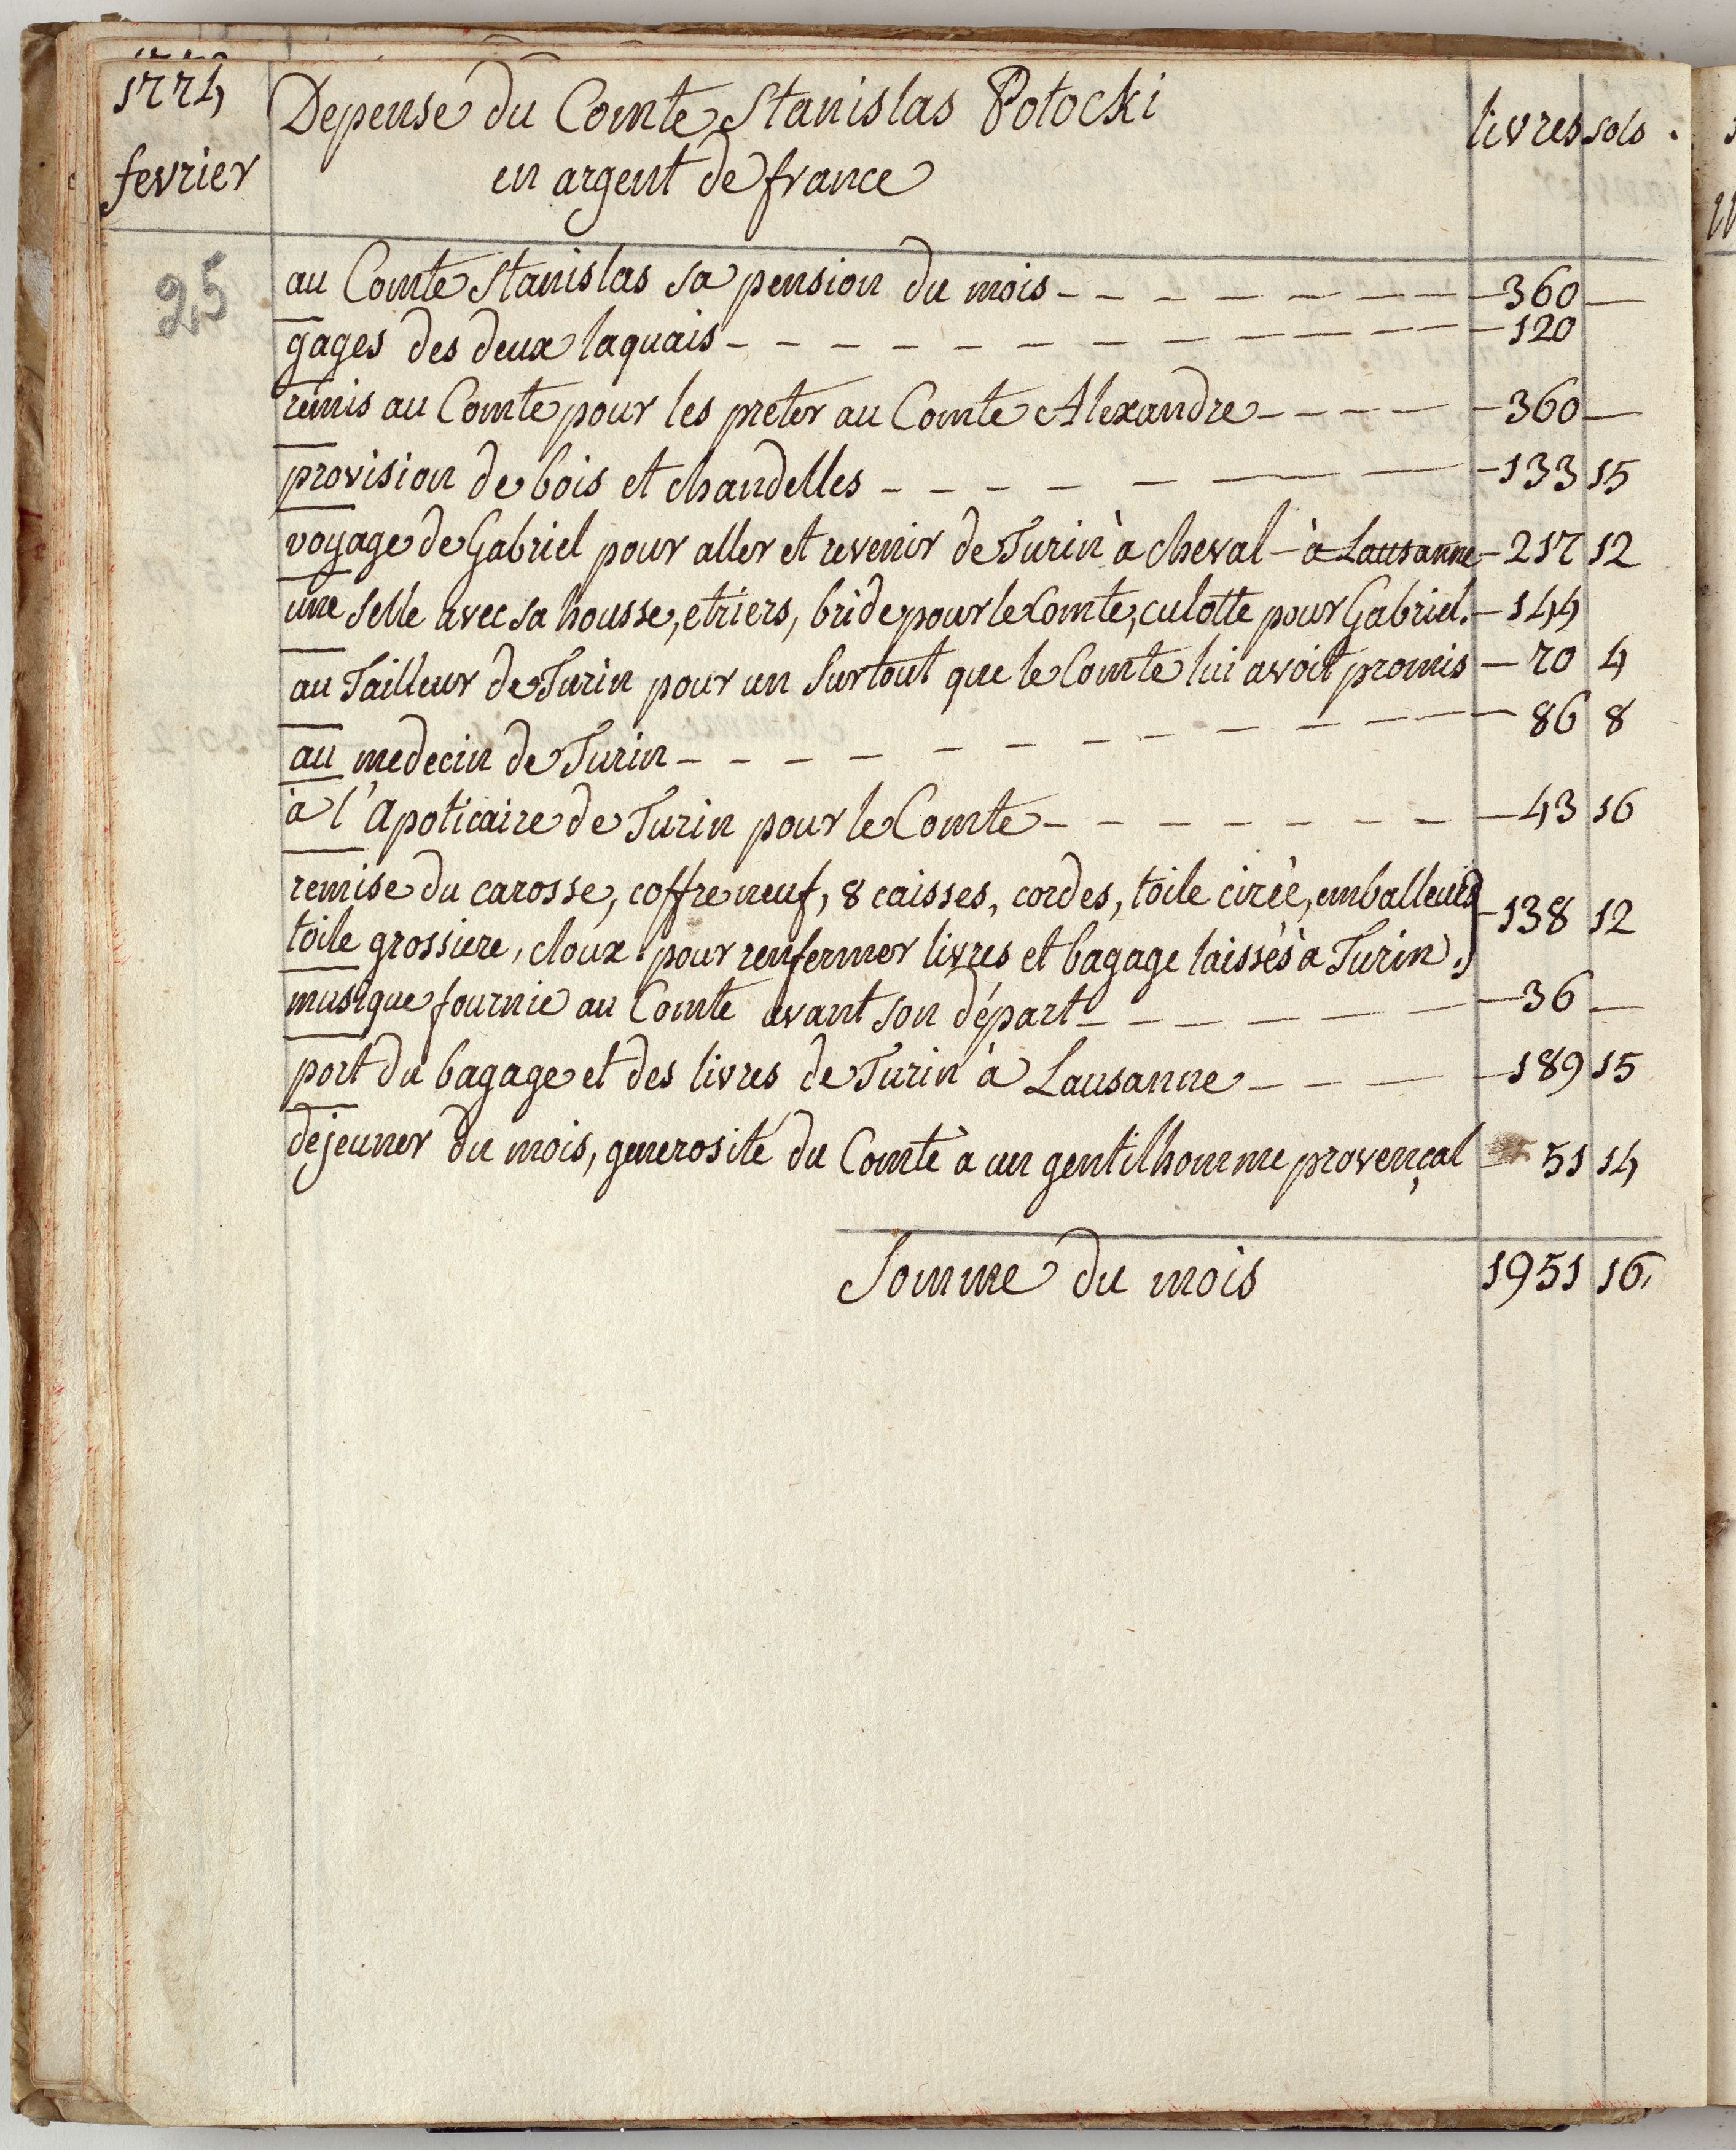 1774 Depense du Comte Stanislas Potocki livres sols .
fevrier en argent de france
25 au Comte Stanislas sa pension du mois - - - - - - - - 360 —
gages des deux laquais - - - - - - - - - - 120
remis au Comte pour les preter au Comte Alexandre - - - - 360 —
provision de bois et chandelles - - - - - - - 133 15
voyage de Gabriel pour aller et revenir de Turin à cheval - à Lausanne - 217 12
une selle avec sa housse, etriers, bride pour le Comte, culotte pour Gabriel. - 144
au Tailleur de Turin pour un Surtout que le Comte lui avoit promis - 70 4
au medecin de Turin - - - - - - - - - - 86 8
à l'Apoticaire de Turin pour le Comte - - - - - - - - 43 16
remise du carosse, coffre neuf, 8 caisses, cordes, toile cirée, emballeurs
toile grossiere, cloux pour renfermer livres et bagage laissés à Turin. } - 138 12
musique fournie au Comte avant son départ - - - - - - 36 —
port du bagage et des livres de Turin à Lausanne - - - - 189 15
dejeuner du mois, generosité du Comte a un gentilhomme provençal 51 14
Somme du mois 1951 16.